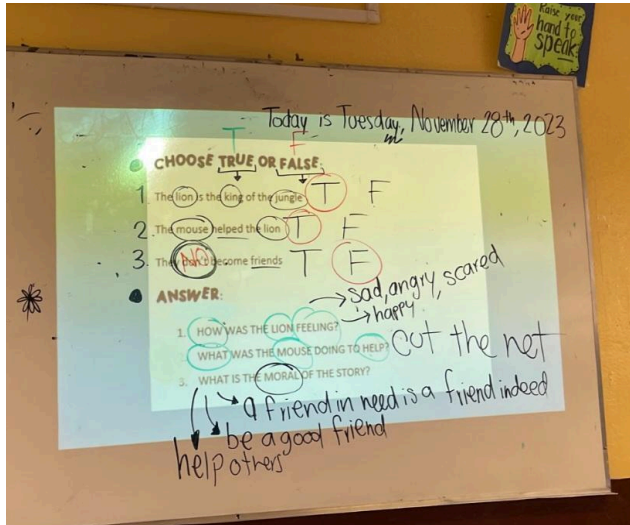 Raise your
hand to
speak
Today is Tuesday, November 28th, 2023
T F
CHOOSE TRUE OR FALSE:
1. The lion is the king of the jungle T F
2. The mouse helped the lion T F
3. They NO become friends T F
ANSWER:
→ sad, angry, scared
→ happy
1. HOW WAS THE LION FEELING?
WHAT WAS THE MOUSE DOING TO HELP? cut the net
3. WHAT IS THE MORAL OF THE STORY?
a friend in need is a friend indeed
be a good friend
help others